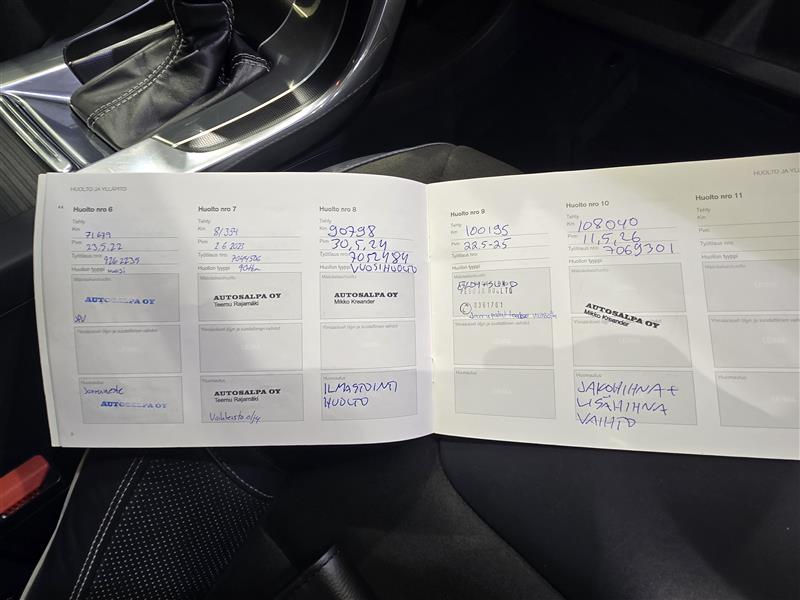 HUOLTO JA YLLÄPITO
Huolto nro 6
Tehty
Km 71679
Pvm 23.5.22
Työtilaus nro:
Huollon tyyppi vuosi
Määräaikaishuolto
AUTOSALPA OY
Ylimääräiset öljyn ja suodattimen vaihdot
Huomautus
Jarruneste
AUTOSALPA OY
Huolto nro 7
Tehty
Km 81354
Pvm 2.6.2023
Työtilaus nro: 7044506
Huollon tyyppi 90tkm
Määräaikaishuolto
AUTOSALPA OY
Teemu Rajamäki
Ylimääräiset öljyn ja suodattimen vaihdot
Huomautus
AUTOSALPA OY
Teemu Rajamäki
Vaihteisto öljy
Huolto nro 8
Tehty
Km 90798
Pvm 30.5.24
Työtilaus nro: 7052484
Huollon tyyppi VUOSIHUOLTO
Määräaikaishuolto
AUTOSALPA OY
Mikko Kreander
Ylimääräiset öljyn ja suodattimen vaihdot
Huomautus
ILMASTOINTI
HUOLTO
Huolto nro 9
Tehty
Km 100195
Pvm 28.5-25
Työtilaus nro:
Huollon tyyppi
Määräaikaishuolto
0361701
Ylimääräiset öljyn ja suodattimen vaihdot
Huomautus
Huolto nro 10
Tehty
Km 108040
Pvm 11.5.26
Työtilaus nro: 7069301
Huollon tyyppi
Määräaikaishuolto
AUTOSALPA OY
Mikko Kreander
Ylimääräiset öljyn ja suodattimen vaihdot
Huomautus
JAKOHIHNA +
LISÄHIHNA
VAIHTO
HUOLTO JA YLL
Huolto nro 11
Tehty
Km
Pvm
Työtilaus nro:
Huollon tyyppi
Määräaikaishuolto
Ylimääräiset öljyn ja suodattimen vaihdot
Huomautus